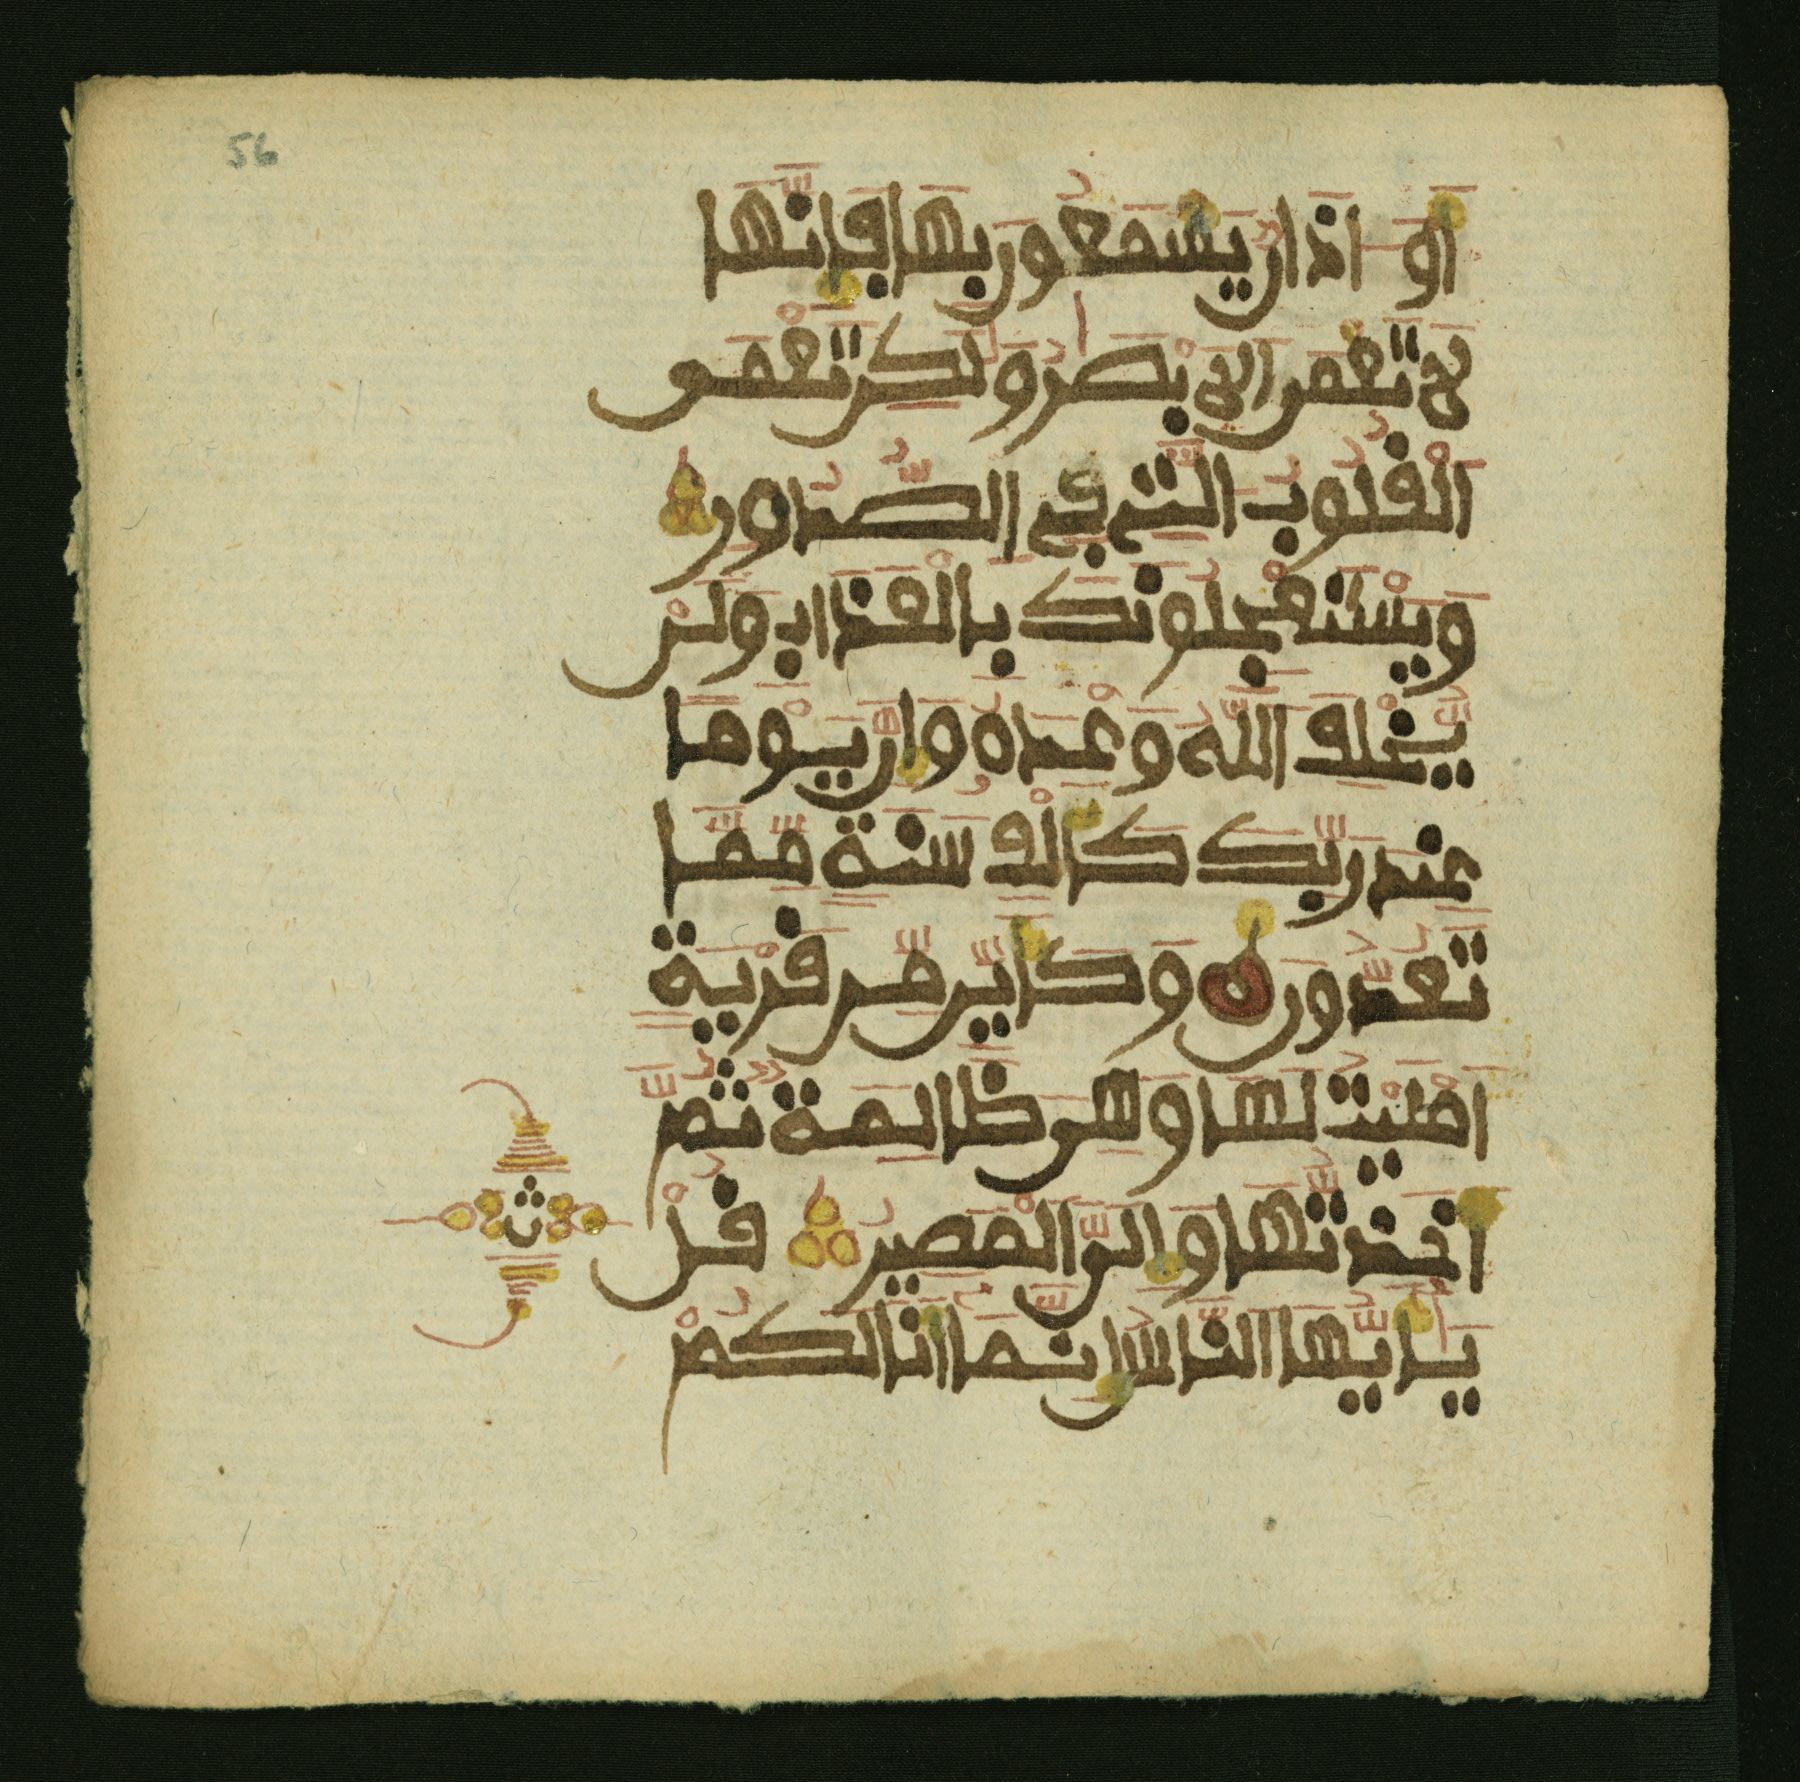 56
أو اذان يسمعون بها فإنها
لا تعمى الابصر ولكن تعمى
القلوب التي في الصدور
ويستعجلونك بالعذاب ولن
يخلف الله وعده وإن يوما
عند ربك كألف سنة مما
تعدون وكأين من قرية
امليت لها وهي ظالمة ثم
أخذتها وإلي المصير قل
يأيها الناس إنما أنا لكم
ث